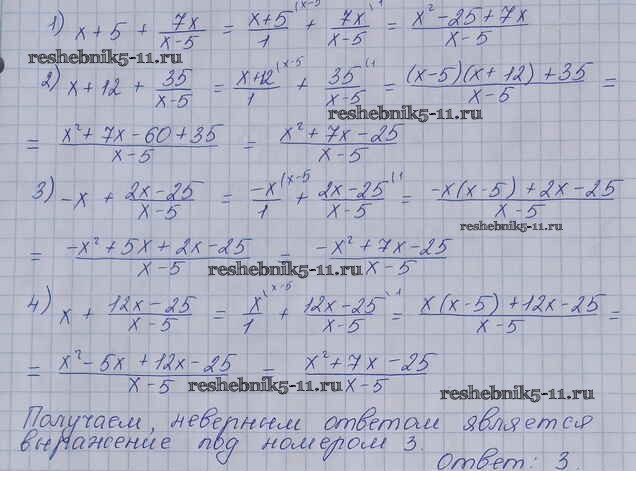 1) x+5 + 7x/(x-5) = (x+5)/1 (x-5 + 7x/(x-5) (1 = (x²-25+7x)/(x-5)
reshebnik5-11.ru
2) x+12 + 35/(x-5) = (x+12)/1 (x-5 + 35/(x-5) (1 = ((x-5)(x+12)+35)/(x-5) =
reshebnik5-11.ru
= (x²+7x-60+35)/(x-5) = (x²+7x-25)/(x-5)
3) -x + (2x-25)/(x-5) = -x/1 (x-5 + (2x-25)/(x-5) (1 = (-x(x-5)+2x-25)/(x-5)
reshebnik5-11.ru
= (-x²+5x+2x-25)/(x-5) = (-x²+7x-25)/(x-5)
reshebnik5-11.ru
4) x + (12x-25)/(x-5) = x/1 (x-5 + (12x-25)/(x-5) (1 = (x(x-5)+12x-25)/(x-5) =
= (x²-5x+12x-25)/(x-5) = (x²+7x-25)/(x-5)
reshebnik5-11.ru
reshebnik5-11.ru
Получаем, неверным ответом является
выражение под номером 3.
Ответ: 3.